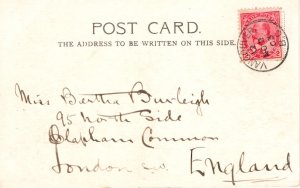 POST CARD.
THE ADDRESS TO BE WRITTEN ON THIS SIDE
Miss Bertha Burleigh
95 North Side
Clapham Common
London
England